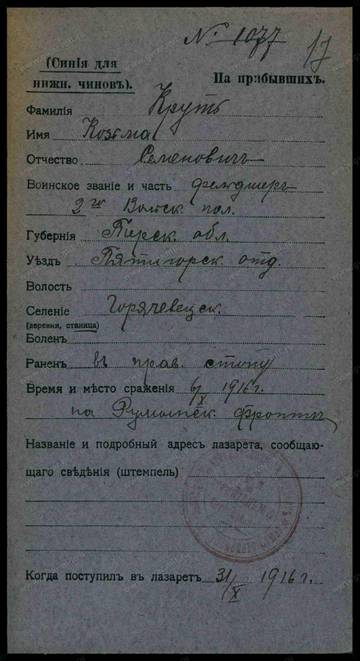 № 1077 17
(Синія для
нижн. чиновъ).
На прибывшихъ.
Фамилія Круть
Имя Козьма
Отчество Семеновичъ
Воинское званіе и часть фельдшеръ
2го Волжск. пол.
Губернія Терск. обл.
Уѣздъ Пятигорск. отд.
Волость
Селеніе Горячеводск.
(деревня, станица)
Боленъ
Раненъ въ прав. стопу
Время и мѣсто сраженія 6/X 1916 г.
на Румынск. фронтѣ
Названіе и подробный адресъ лазарета, сообщаю-
щаго свѣдѣнія (штемпель)
Когда поступилъ въ лазаретъ 31/X 1916 г.